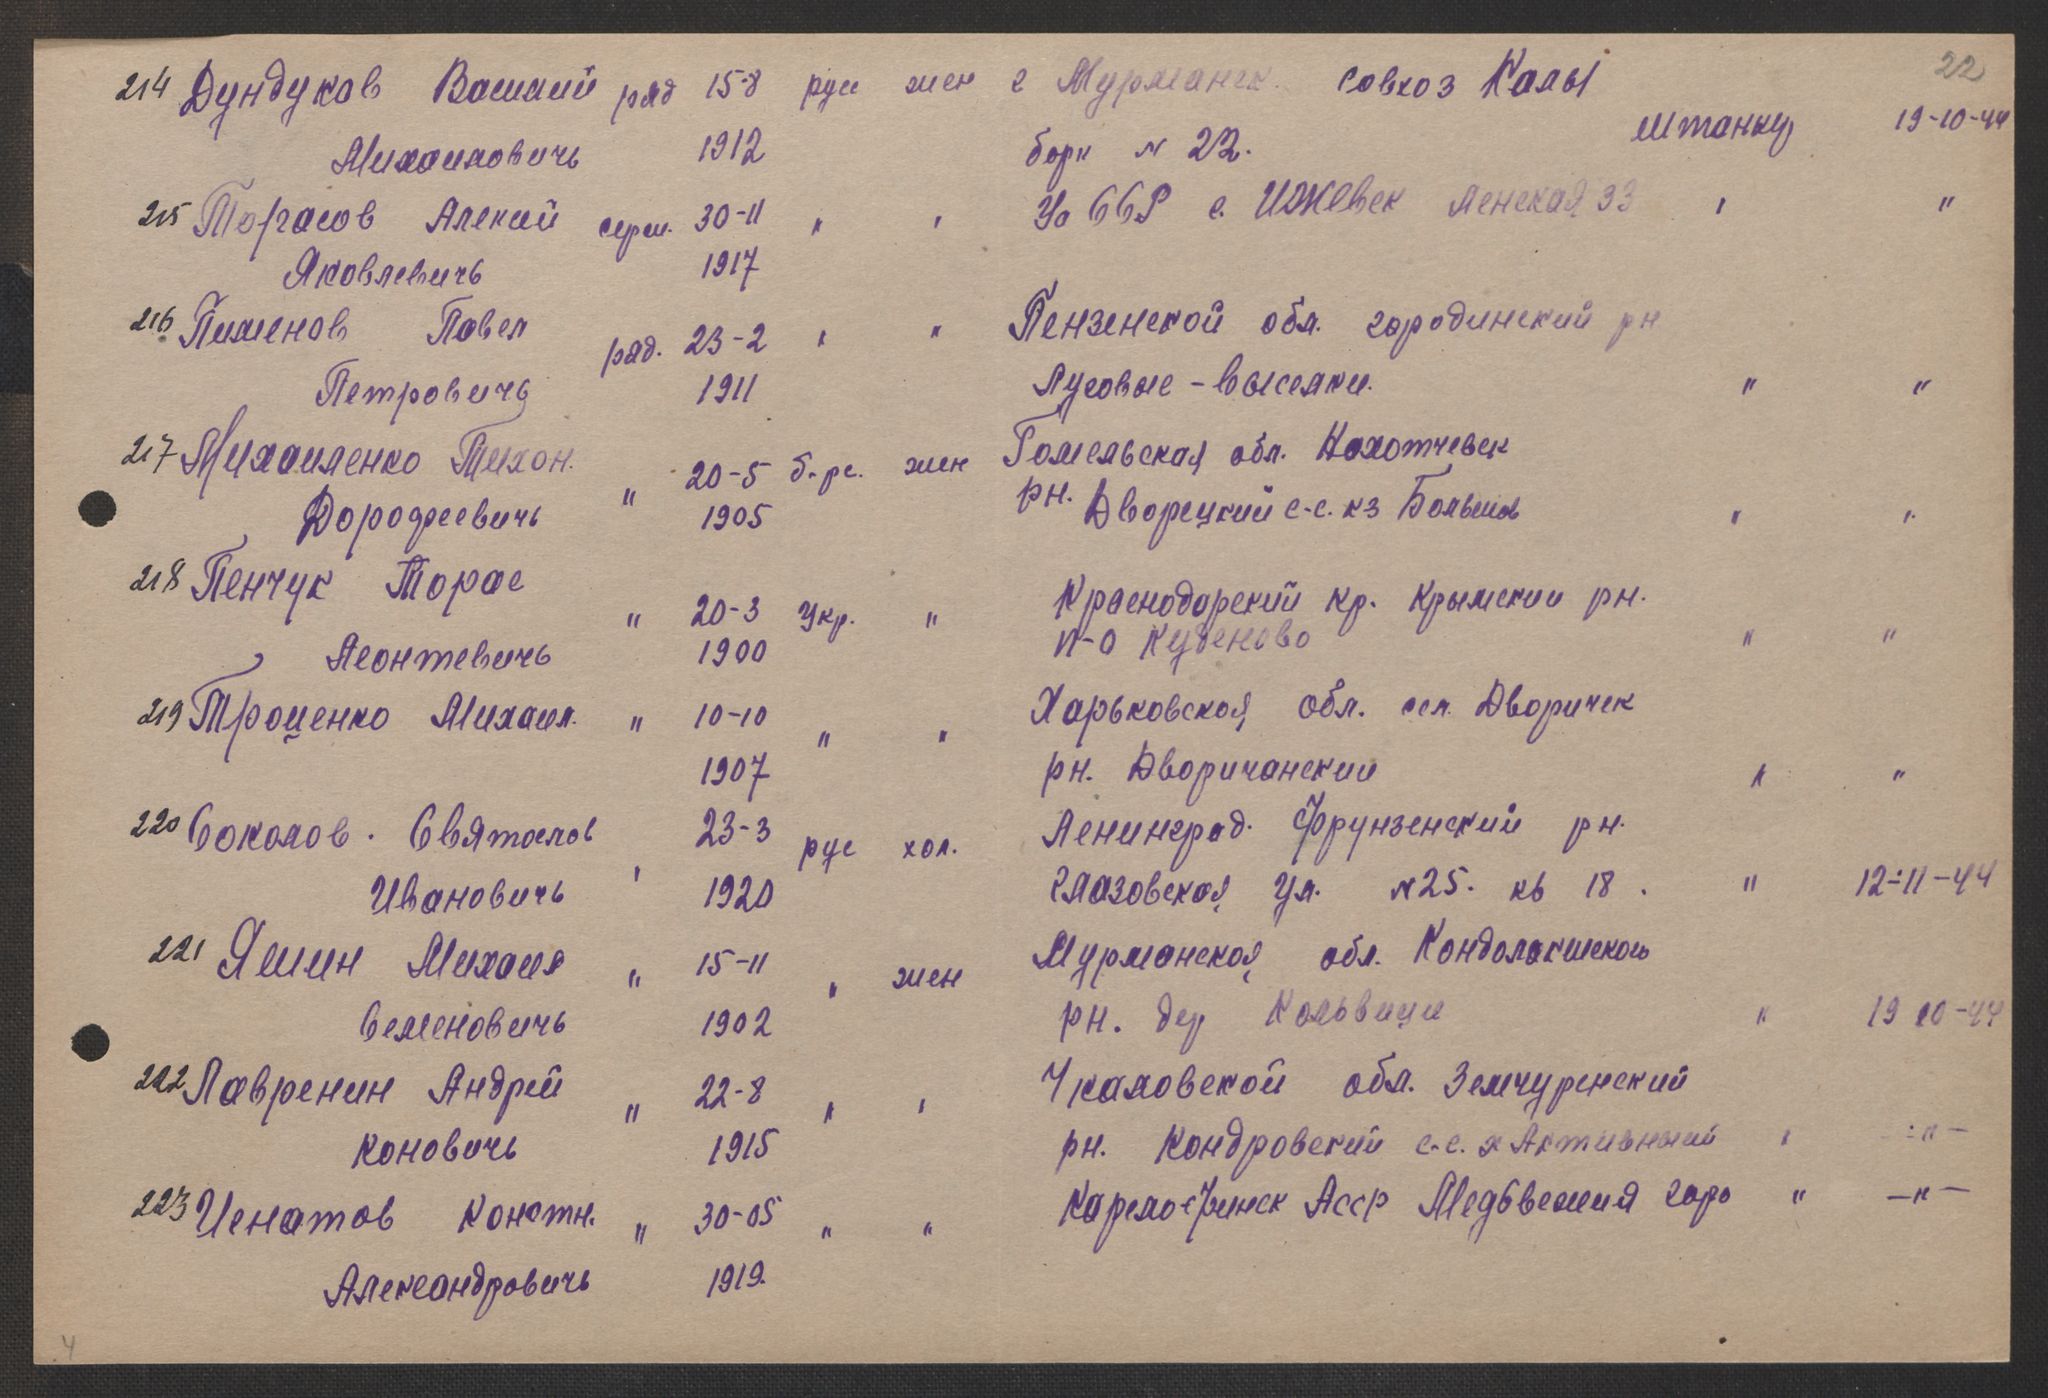 22
214 Дундуков Василий ряд 15-8 рус жен г Мурманск. совхоз Колы
Михаиловичь 1912 борк № 22. Штанку 19-10-44
215 Торасов Алексий серж. 30-11 " " Уо ССР г. Ижевск Ленская 33 " "
Яковлевичь 1917
216 Пименов Повел ряд. 23-2 " " Пензенской обл. городинский рн
Петровичь 1911 Луговые - Выселки. " "
217 Михаиленко Тихон. " 20-5 б-рс. жен Гомельская обл.
Дорофеевичь 1905 рн. Дворецкий с-с. кз Большов " "
218 Пенчук Торас " 20-3 Укр. " Краснодорский кр. Крымскии рн.
Леонтевичь 1900 п-о Куденово " "
219 Троценко Михаил. " 10-10 " " Харьковская обл. сел. Дворичек
1907 рн. Дворичанскии " "
220 Соколов. Святослов " 23-3 рус хол. Ленинград. Фрунзенский рн.
Ивановичь 1920 глазовская ул. № 25. кв 18. " 12-11-44
221 Яшин Михаил " 15-11 " жен Мурманская обл. Кондолакшского
Семеновичь 1902 рн. дер Кольвици " 19 10-44
222 Лавренин Андрей " 22-8 " " Чкаловской обл. Земчуренский
Коновичь 1915 рн. Кондровский с-с. х Активный " -"-
223 Игнатов Констн. " 30-05 " " Карело-Финск Асср Медбвежия горо " -"-
Александровичь 1919.
4